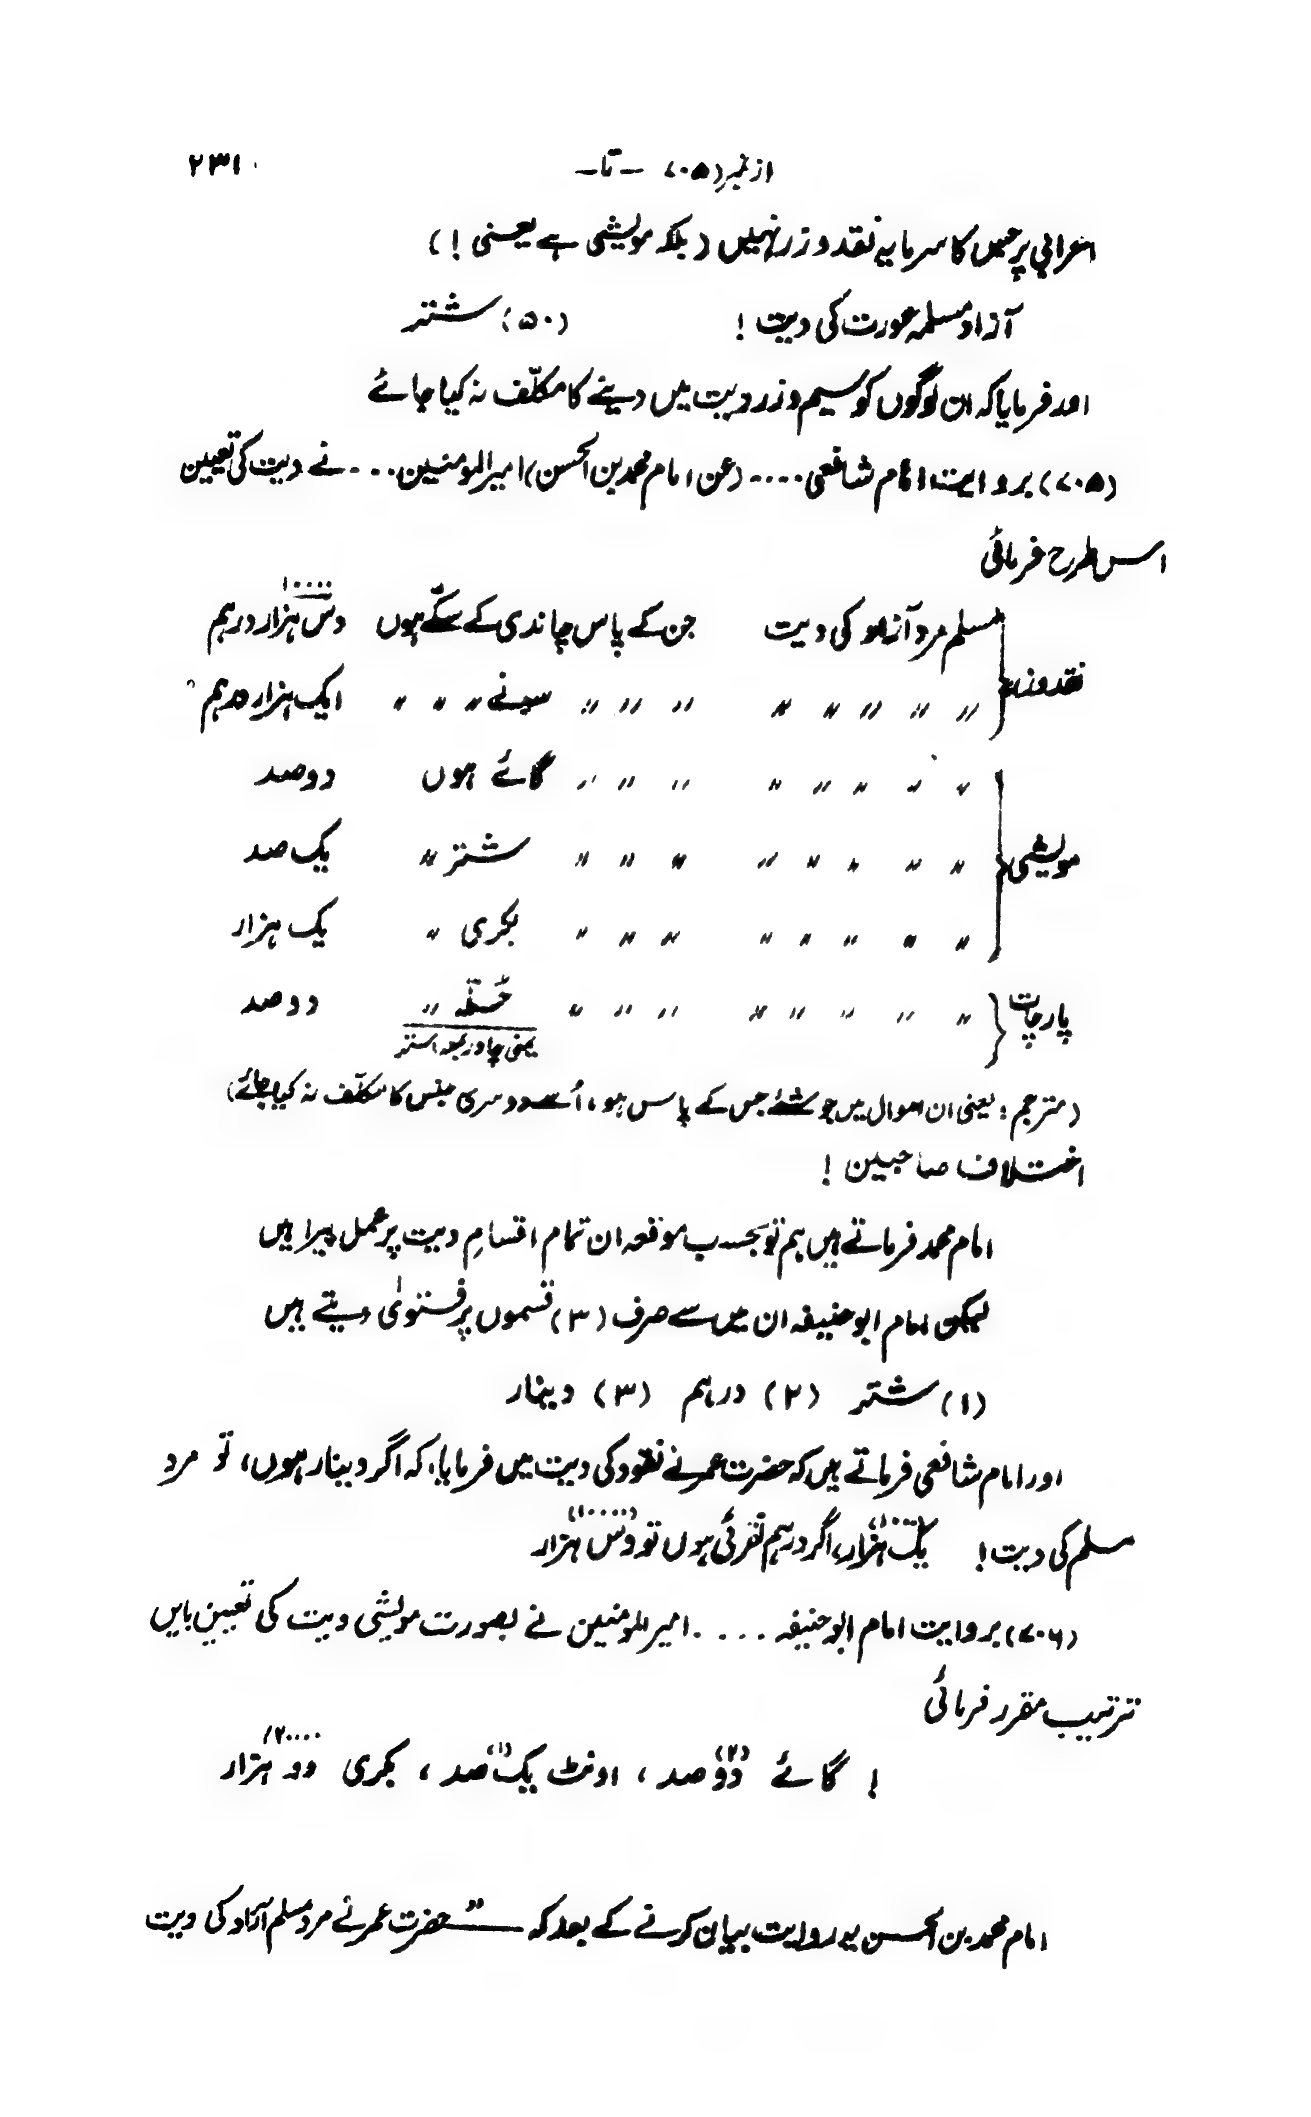 از نمبر (۷۰۵ — تا — ۲۳۱
اعرابی پر جس کا سرمایہ نقد و زر نہیں (بلکہ مویشی ہے یعنی !)
آزاد مسلمہ عورت کی دیت ! (۵۰) شتر
اور فرمایا کہ ان لوگوں کو سیم و زر دیت میں دینے کا مکلّف نہ کیا جائے
(۷۰۵) بروایت امام شافعی .... (عن امام محمد بن الحسن) امیر المومنین ... نے دیت کی تعیین
اس طرح فرمائی
نقد و زر { مسلم مرد آزاد کی دیت جن کے پاس چاندی کے سکّے ہوں دس ہزار درہم ۱۰۰۰۰
〃 〃 〃 〃 〃 〃 〃 〃 سونے 〃 〃 〃 ایک ہزار درہم
مویشی { 〃 〃 〃 〃 〃 〃 〃 〃 گائے ہوں دو صد
〃 〃 〃 〃 〃 〃 〃 〃 شتر 〃 یک صد
〃 〃 〃 〃 〃 〃 〃 〃 بکری 〃 یک ہزار
پارچات { 〃 〃 〃 〃 〃 〃 〃 〃 حُلّہ 〃 دو صد
یمنی چادر بمعہ استر
(مترجم : یعنی ان اموال میں جو شئے جس کے پاس ہو، اُسے دوسری جنس کا مکلّف نہ کیا جائے)
اختلاف صاحبین !
امام محمد فرماتے ہیں ہم تو بحسب موقعہ ان تمام اقسامِ دیت پر عمل پیرا ہیں
لیکن امام ابو حنیفہ ان میں سے صرف (۳) قسموں پر فتویٰ دیتے ہیں
(۱) شتر (۲) درہم (۳) دینار
اور امام شافعی فرماتے ہیں کہ حضرت عمر نے نقود کی دیت میں فرمایا، کہ اگر دینار ہوں، تو مرد
مسلم کی دیت ! یک ہزار (۱۰۰۰)، اگر درہم نقرئی ہوں تو دس ہزار (۱۰۰۰۰)
(۷۰۶) بروایت امام ابو حنیفہ .... امیر المومنین نے بصورت مویشی دیت کی تعیین بایں
ترتیب مقرر فرمائی
! گائے دو (۲) صد ، اونٹ یک (۱) صد ، بکری دو ہزار (۲۰۰۰۰
امام محمد بن الحسن یہ روایت بیان کرنے کے بعد کہ — حضرت عمر نے مرد مسلم آزاد کی دیت